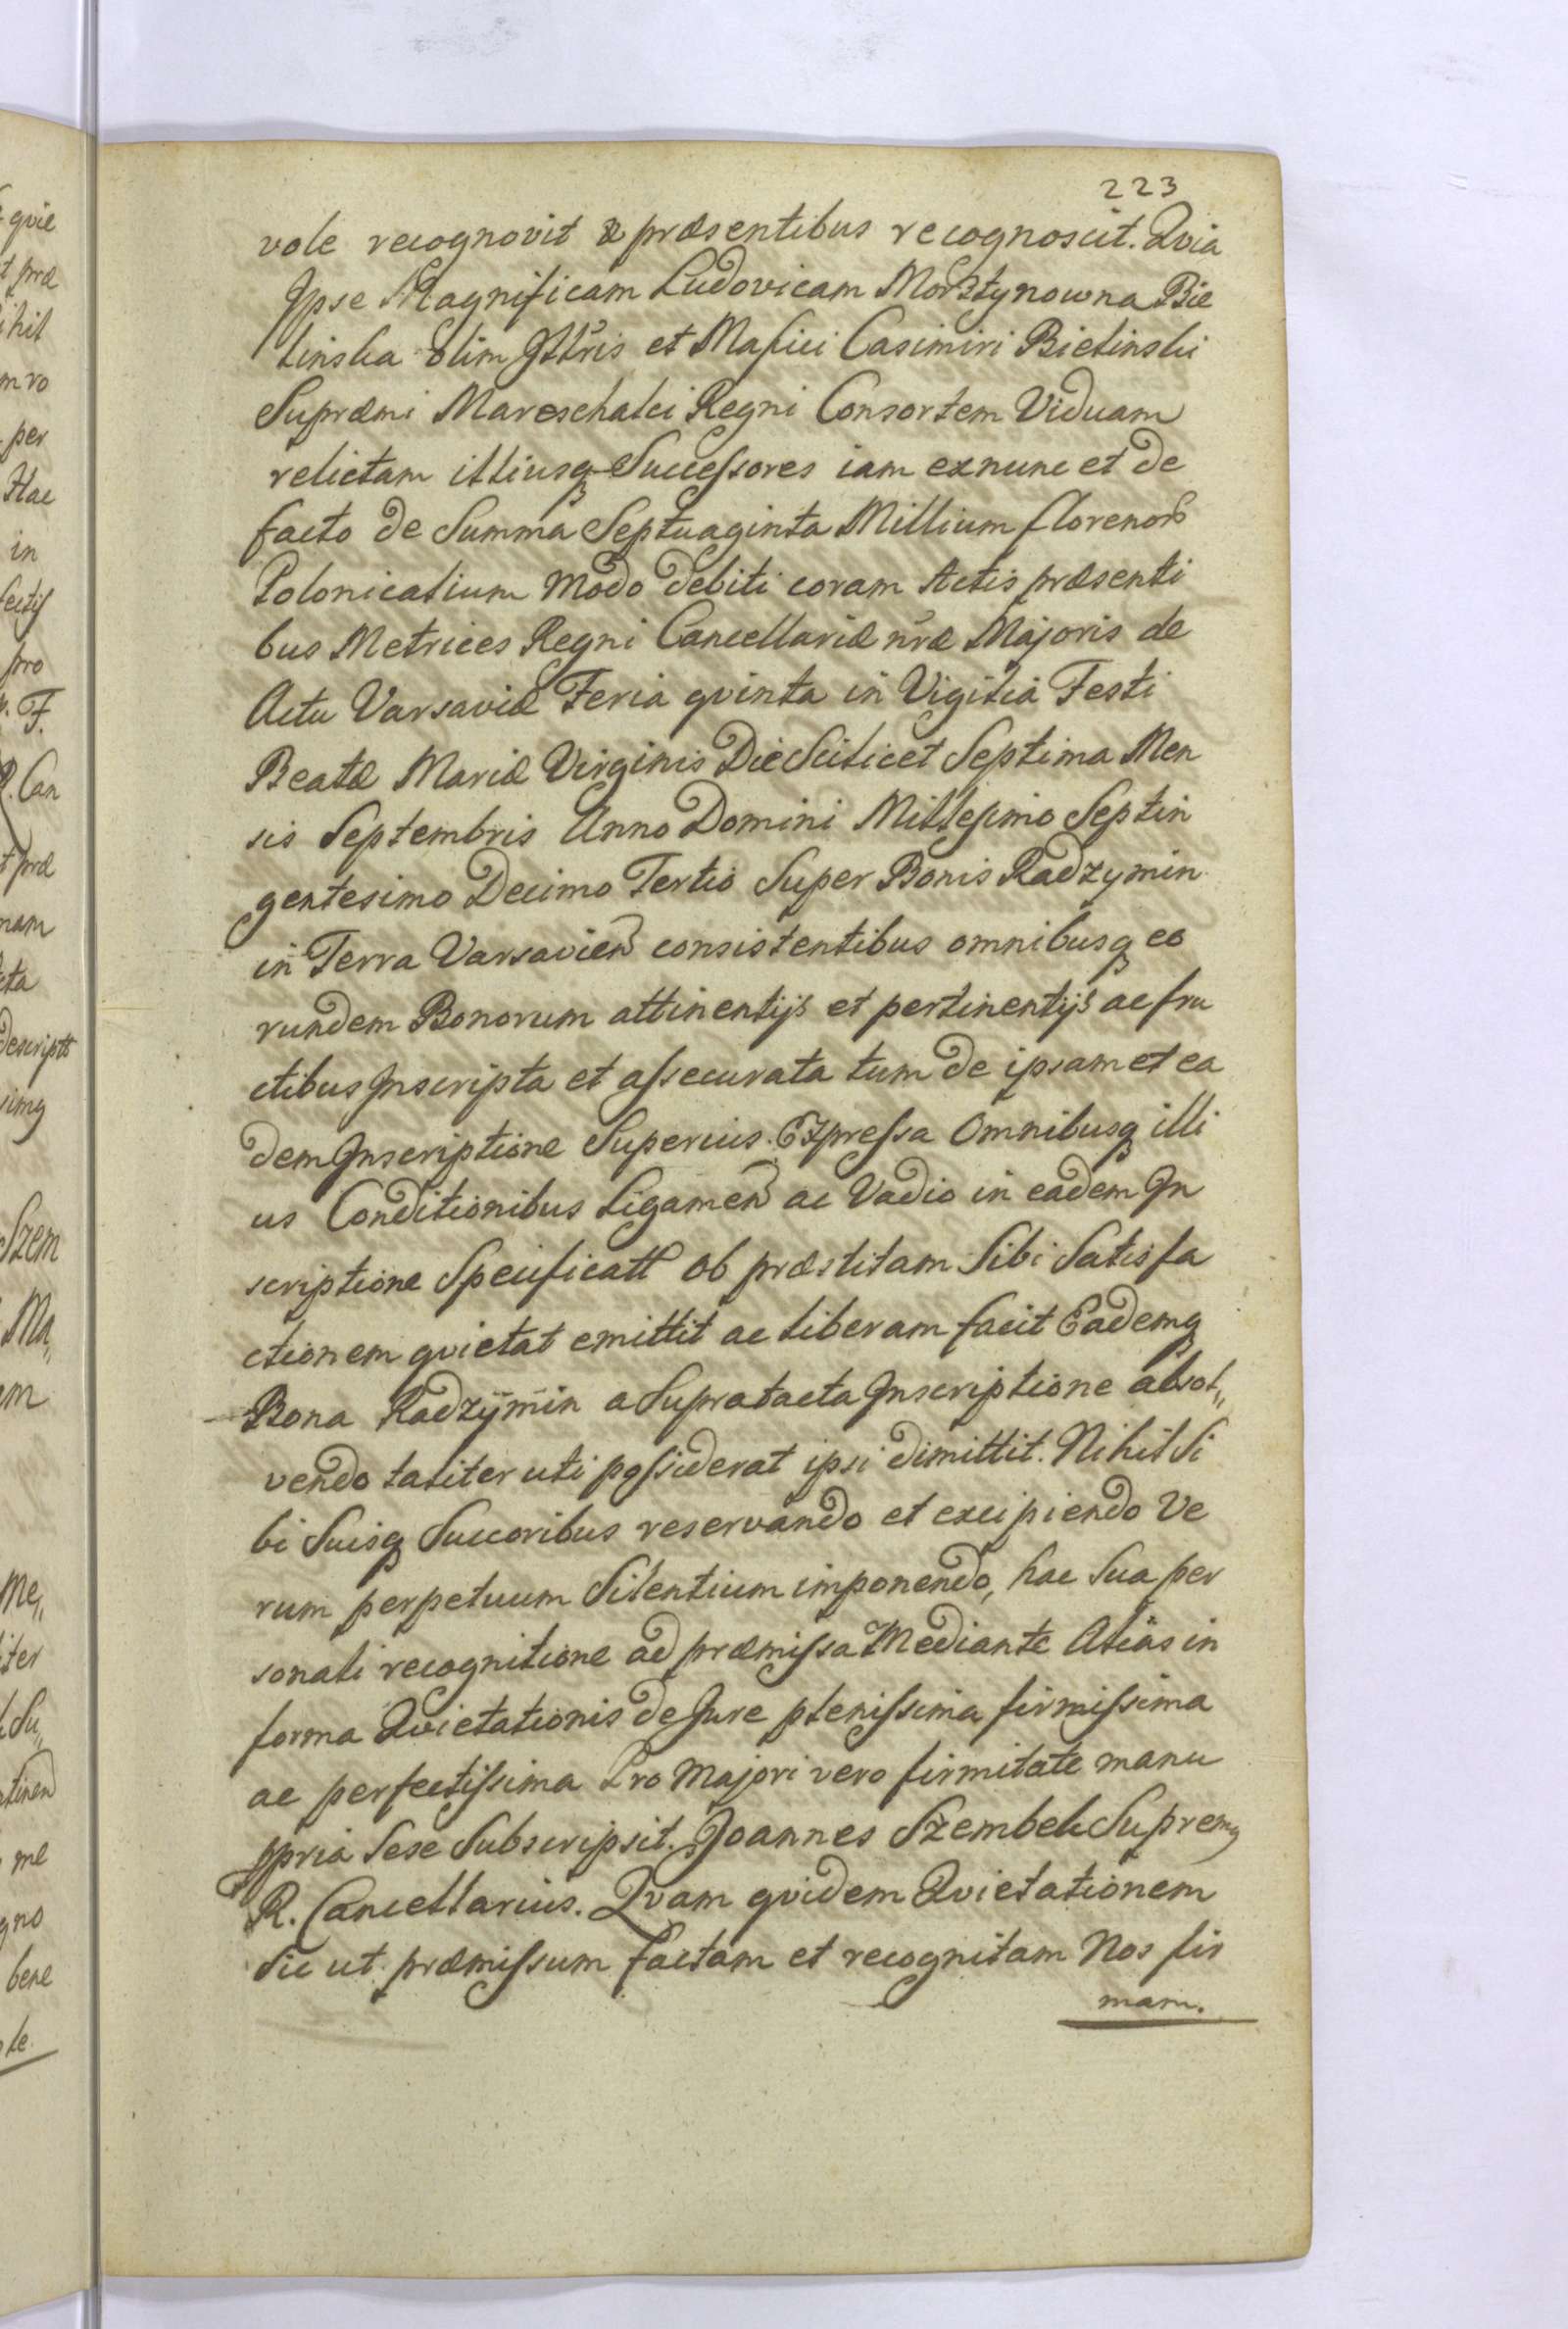 223
vole recognovit & præsentibus recognoscit. Qvia
Ipse Magnificam Ludovicam Morsztynowna Bie
linska olim Illris et Mafici Casimiri Bielinski
Supræmi Mareschalci Regni Consortem Viduam
relictam illiusq Successores iam exnunc et de
facto de Summa Septuaginta Millium florenor
Polonicalium Modo debiti coram Actis præsenti
bus Metrices Regni Cancellariæ nræ Majoris de
Actu Varsaviæ Feria qvinta in Vigilia Festi
Beatæ Mariæ Virginis Die Scilicet Septima Men
sis Septembris Anno Domini Millesimo Septin
gentesimo Decimo Tertio Super Bonis Radzymin
in Terra Varsavien consistentibus omnibusq eo
rundem Bonorum attinentijs et pertinentijs ac fru
ctibus Inscripta et assecurata tum de ipsamet ea
dem Inscriptione Superius Expressa Omnibusq illi
us Conditionibus Ligamen ac Vadio in eadem In
scriptione Specificatt ob præstitam Sibi Satisfa
ctionem qvietat emittit ac liberam facit Eademq
Bona Radzymin a Supratacta Inscriptione absol„
vendo taliter uti possiderat ipsi dimittit. Nihil Si
bi Suisq Succoribus reservando et excipiendo Ve
rum perpetuum Silentium imponendo, hac Sua per
sonali recognitione ad præmissa Mediante Alias in
forma Qvietationis de Jure plenissima firmissima
ac perfectissima Pro Majori vero firmitate manu
ppria Sese Subscripsit. Joannes Szembek Supremq
R. Cancellarius. Qvam qvidem Qvietationem
Sic ut præmissum factam et recognitam Nos fir
mam.
qvie
t præ
ihil
per
Hac
in
pro
F.
Can
t præ
nam
cta
descriptt
simq
Szem
Ma„
em
Me„
iter
Su„
tinen
me
gno
bene
le